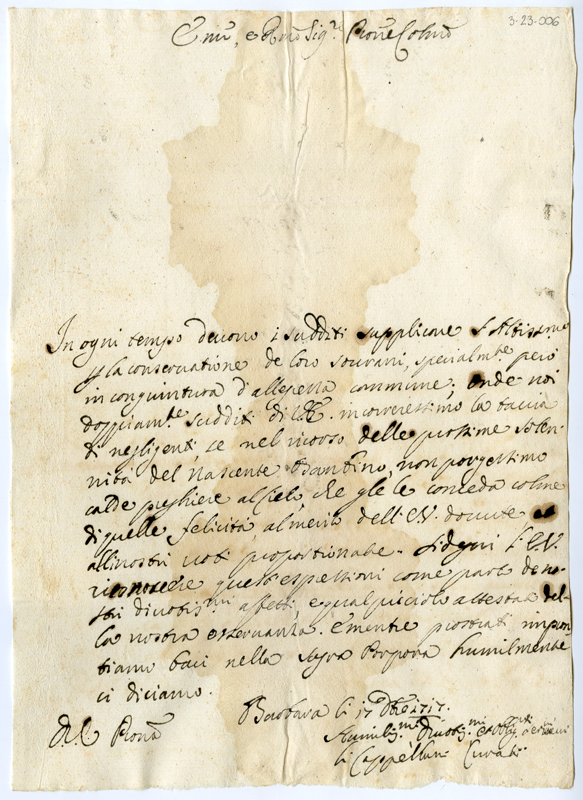 3-23-006
Emo, e Rmo Sig.re Pron e Colmo
In ogni tempo devono i sudditi supplicare l'Altissimo
p la conservatione de loro sourani, specialmte però
in congiuntura d'allegrezza commune; onde noi
doppiamte sudditi di V.E. incorreressimo la taccia
di negligenti, se nel ricorso delle prossime solen-
nità del Nascente Bambino, non porgessimo
calde preghiere al Cielo, che gle le conceda colme
di quelle felicità, al merito dell'E.V. dovute et
alli nostri voti proportionate. Si degni l'E.V.
riconoscere queste espressioni come parti de no-
stri divotis.mi affetti, e qual picciolo attestato del-
la nostra osservanza. E mentre prostrati impron-
tiamo baci nella Sagra Porpora humilmente
ci diciamo.
Barbara li 17 Xbre 1717.
Humilis.mi Divotis.mi et Oblig.
li Cappellani Curati